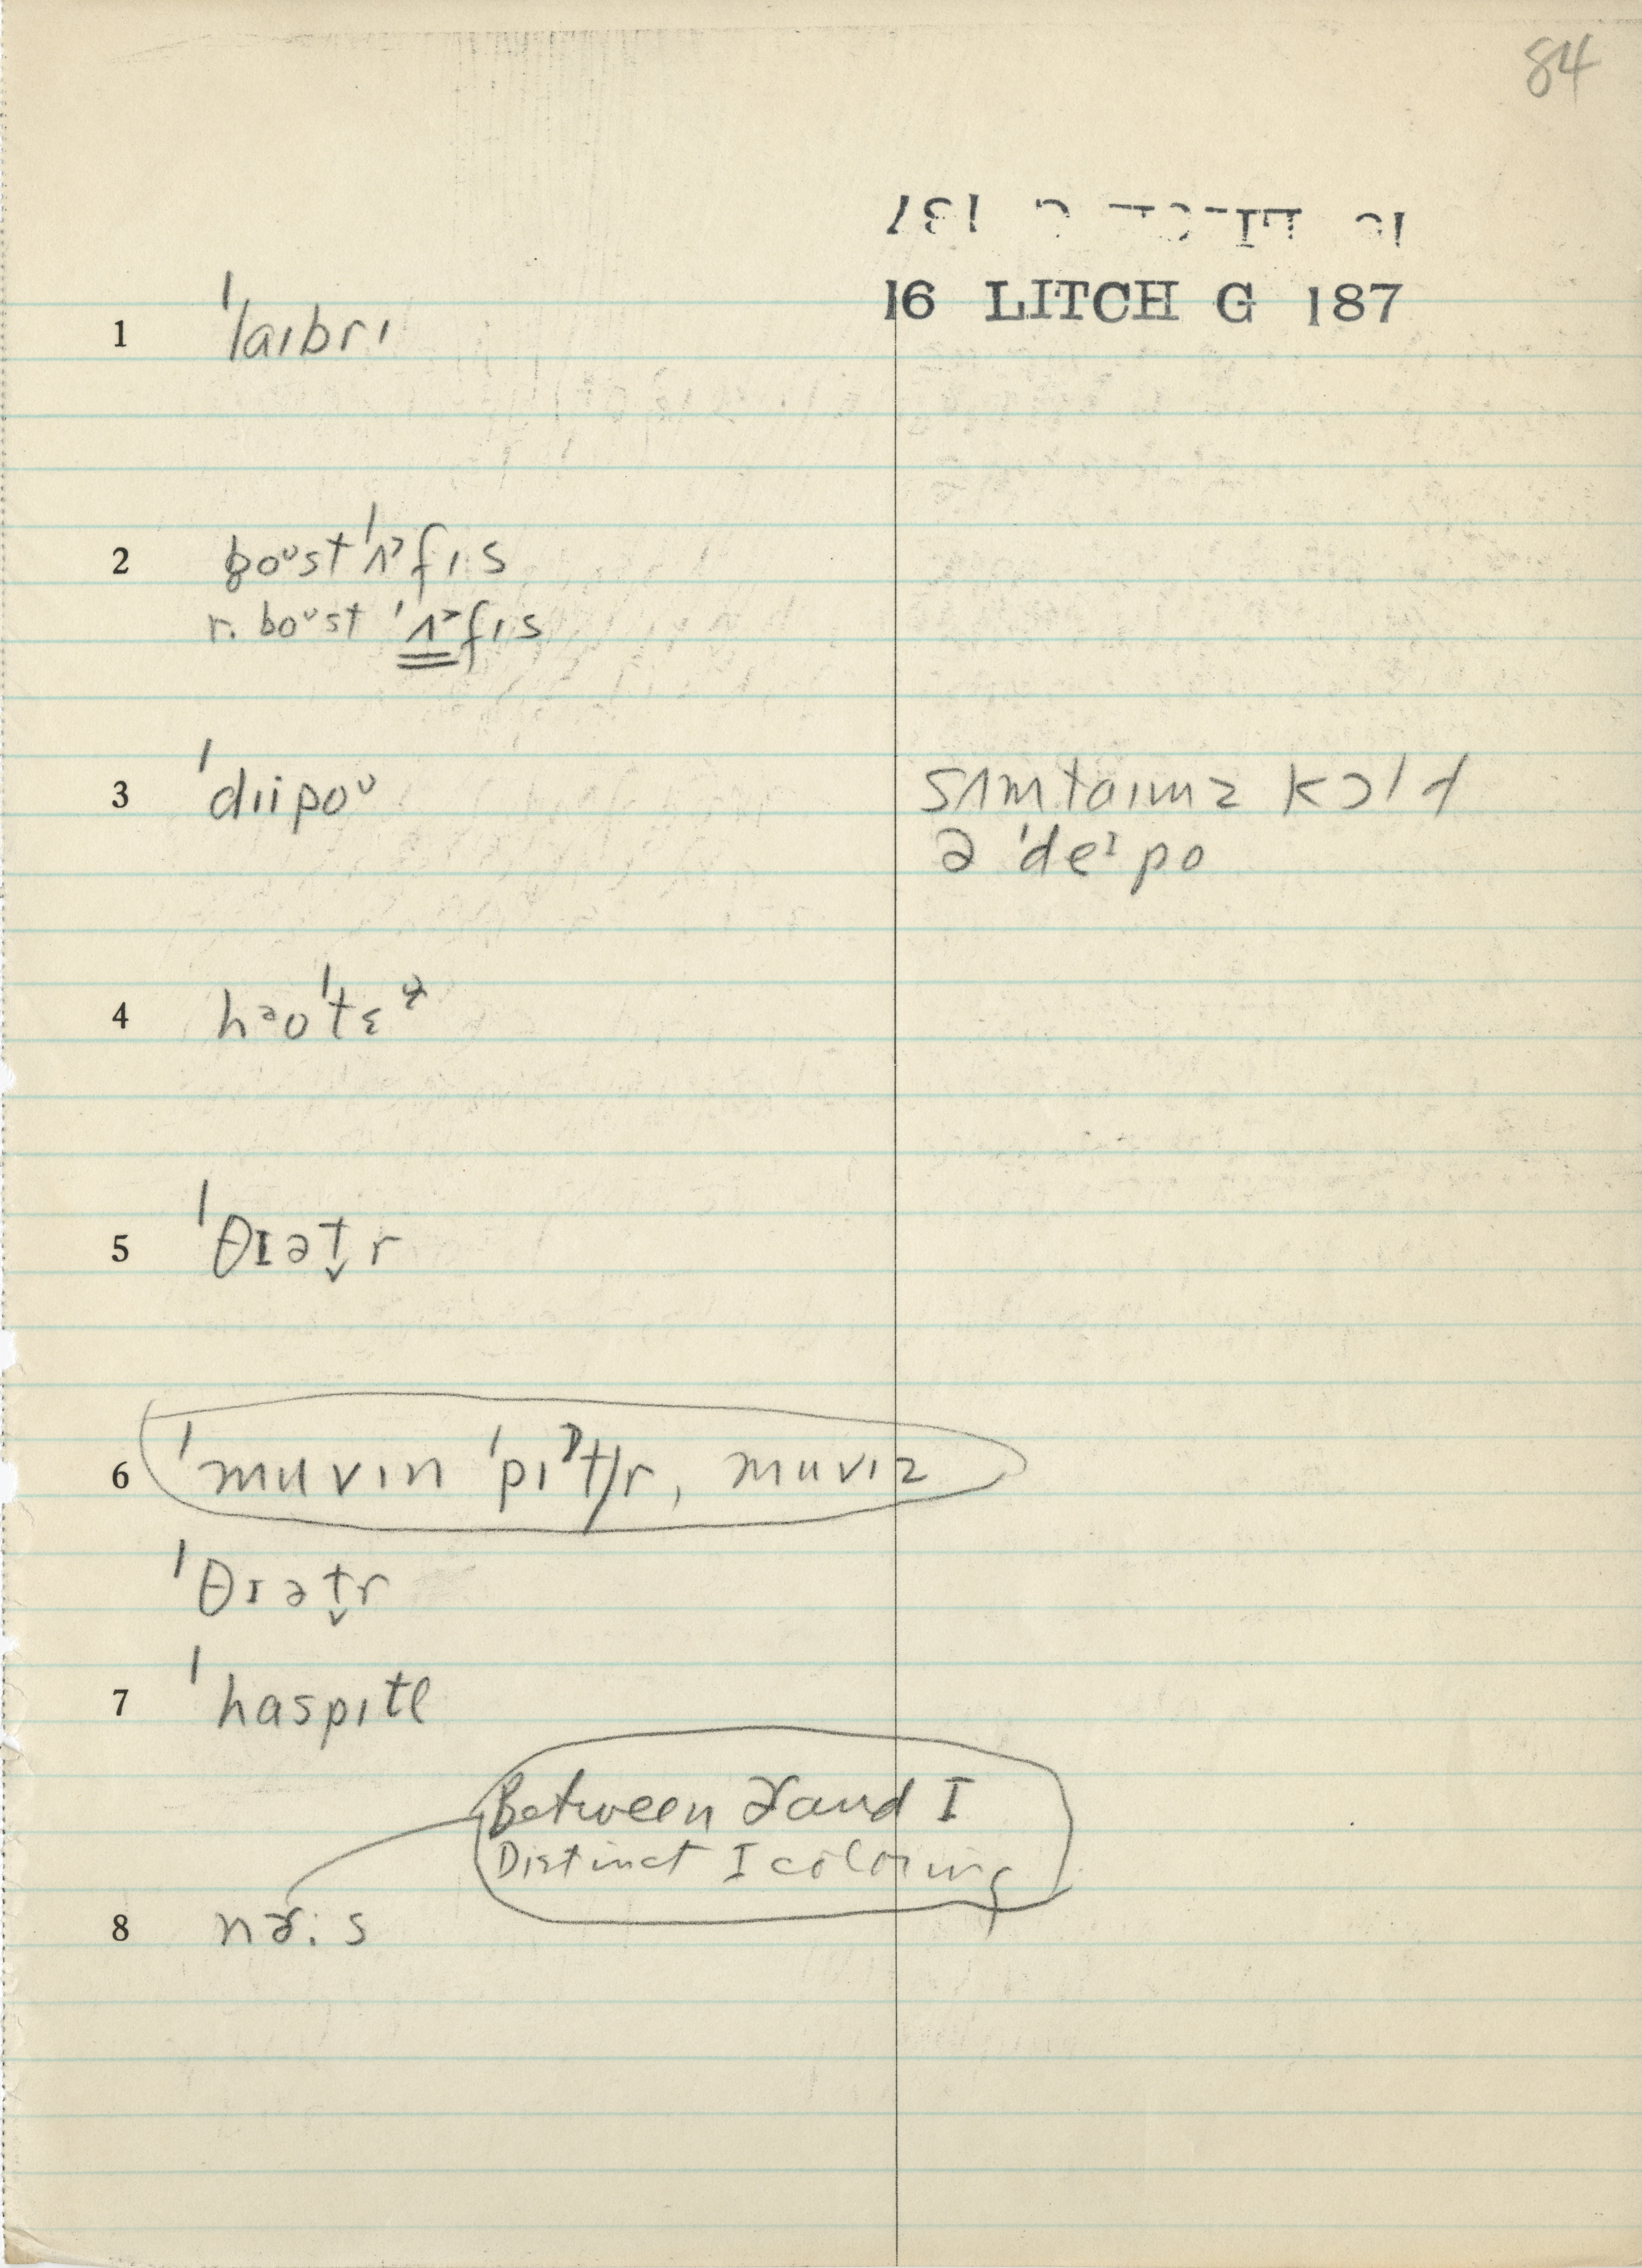 84
16 LITCH G 187
1 ˈlaɪbrɪ
2 poᶷst ˈʌ˃fɪs
r. poᶷst ˈʌ˃fɪs
3 ˈdɪipoᶷ sʌmtaɪmz kɔld
ə ˈdeᶦpo
5 ˈθɪət̬r
6 ˈmuvɪn ˈpɪʔtʃr, muvɪz
ˈθɪət̬r
7 ˈhaspɪtl
Between ɚ and I
Distinct I coloring
8 nɚ:s